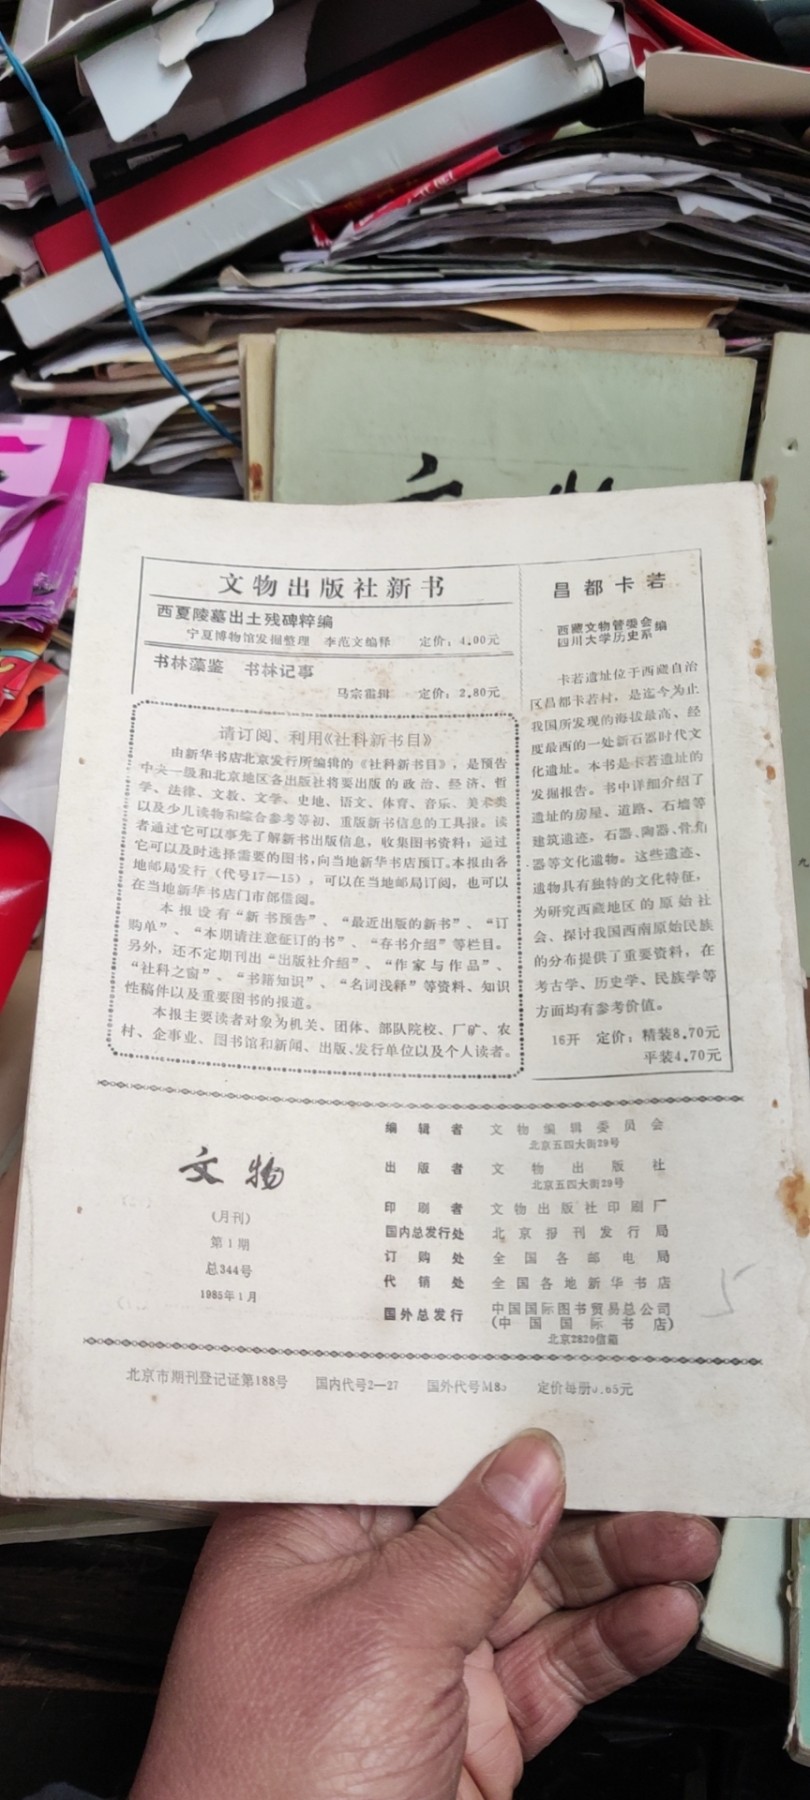 文物出版社新书
西夏陵墓出土残碑粹编
宁夏博物馆发掘整理 李范文编释 定价：4.00元
书林藻鉴 书林记事
马宗霍辑 定价：2.80元
请订阅、利用《社科新书目》
由新华书店北京发行所编辑的《社科新书目》，是预告
中央一级和北京地区各出版社将要出版的政治、经济、哲
学、法律、文教、文学、史地、语文、体育、音乐、美术类
以及少儿读物和综合参考等初、重版新书信息的工具报。读
者通过它可以事先了解新书出版信息，收集图书资料；通过
它可以及时选择需要的图书，向当地新华书店预订。本报由各
地邮局发行（代号17—15），可以在当地邮局订阅，也可以
在当地新华书店门市部借阅。
本报设有“新书预告”、“最近出版的新书”、“订
购单”、“本期请注意征订的书”、“存书介绍”等栏目。
另外，还不定期刊出“出版社介绍”、“作家与作品”、
“社科之窗”、“书籍知识”、“名词浅释”等资料、知识
性稿件以及重要图书的报道。
本报主要读者对象为机关、团体、部队院校、厂矿、农
村、企事业、图书馆和新闻、出版、发行单位以及个人读者。
昌都卡若
西藏文物管委会
四川大学历史系 编
卡若遗址位于西藏自治
区昌都卡若村，是迄今为止
我国所发现的海拔最高、经
度最西的一处新石器时代文
化遗址。本书是卡若遗址的
发掘报告。书中详细介绍了
遗址的房屋、道路、石墙等
建筑遗迹，石器、陶器、骨角
器等文化遗物。这些遗迹、
遗物具有独特的文化特征，
为研究西藏地区的原始社
会、探讨我国西南原始民族
的分布提供了重要资料，在
考古学、历史学、民族学等
方面均有参考价值。
16开 定价：精装8.70元
平装4.70元
文物
（月刊）
第1期
总344号
1985年1月
编辑者 文物编辑委员会
北京五四大街29号
出版者 文物出版社
北京五四大街29号
印刷者 文物出版社印刷厂
国内总发行处 北京报刊发行局
订购处 全国各邮电局
代销处 全国各地新华书店
国外总发行 中国国际图书贸易总公司
（中国国际书店）
北京2820信箱
5
北京市期刊登记证第188号 国内代号2—27 国外代号M85 定价每册0.65元
文物
九